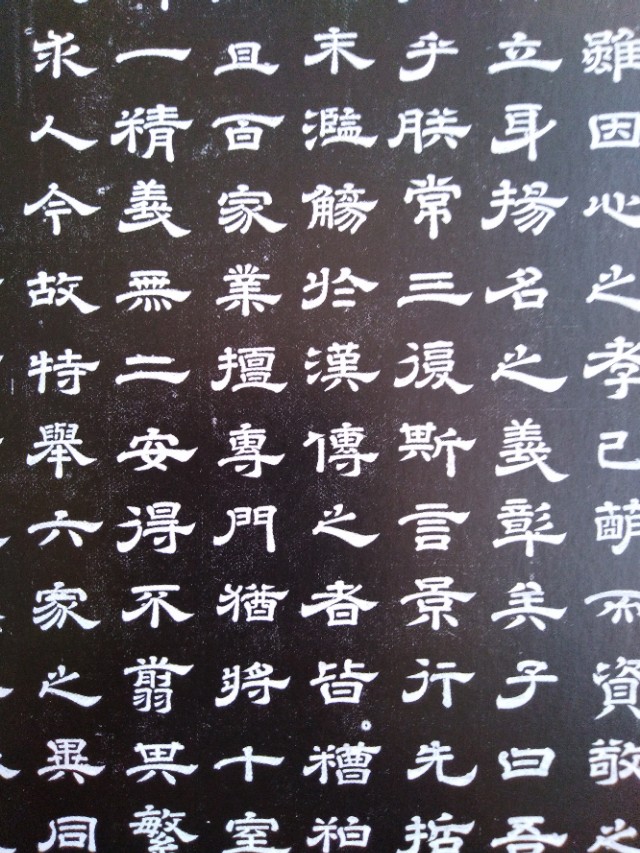 雖因心之孝已萌而資敬之
立身揚名之義彰矣子曰吾
乎朕常三復斯言景行先哲
末濫觴於漢傳之者皆糟粕
且百家業擅專門猶將十室
一精義無二安得不翦其繁
求人今故特舉六家之異同